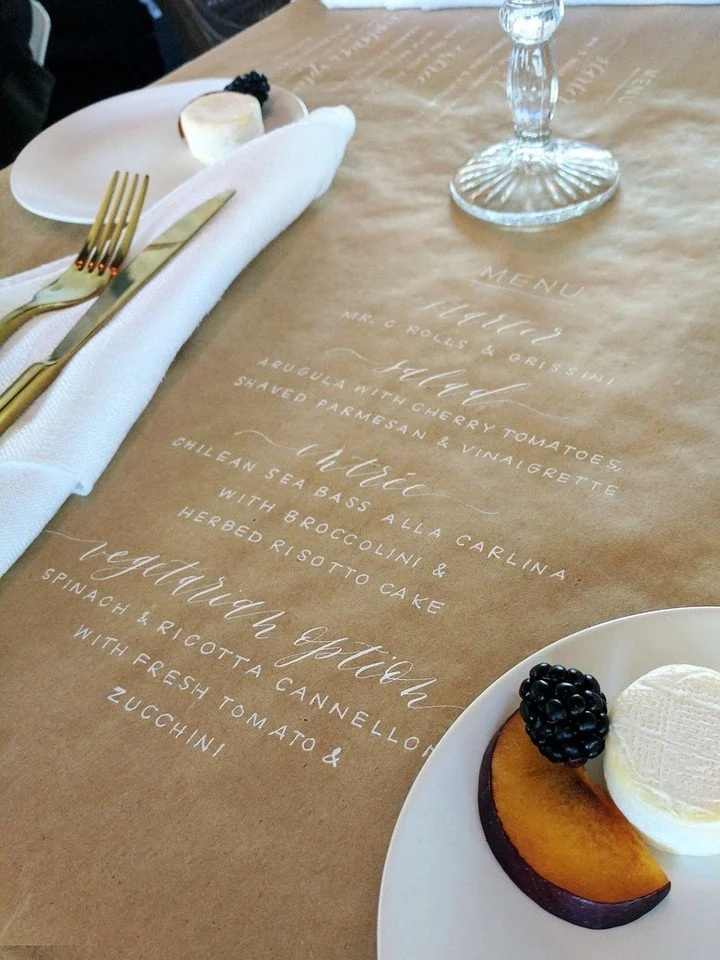 MENU
starter
MR. G ROLLS & GRISSINI
salad
ARUGULA WITH CHERRY TOMATOES,
SHAVED PARMESAN & VINAIGRETTE
entrée
CHILEAN SEA BASS ALLA CARLINA
WITH BROCCOLINI &
HERBED RISOTTO CAKE
vegetarian option
SPINACH & RICOTTA CANNELLON
WITH FRESH TOMATO &
ZUCCHINI
MENU